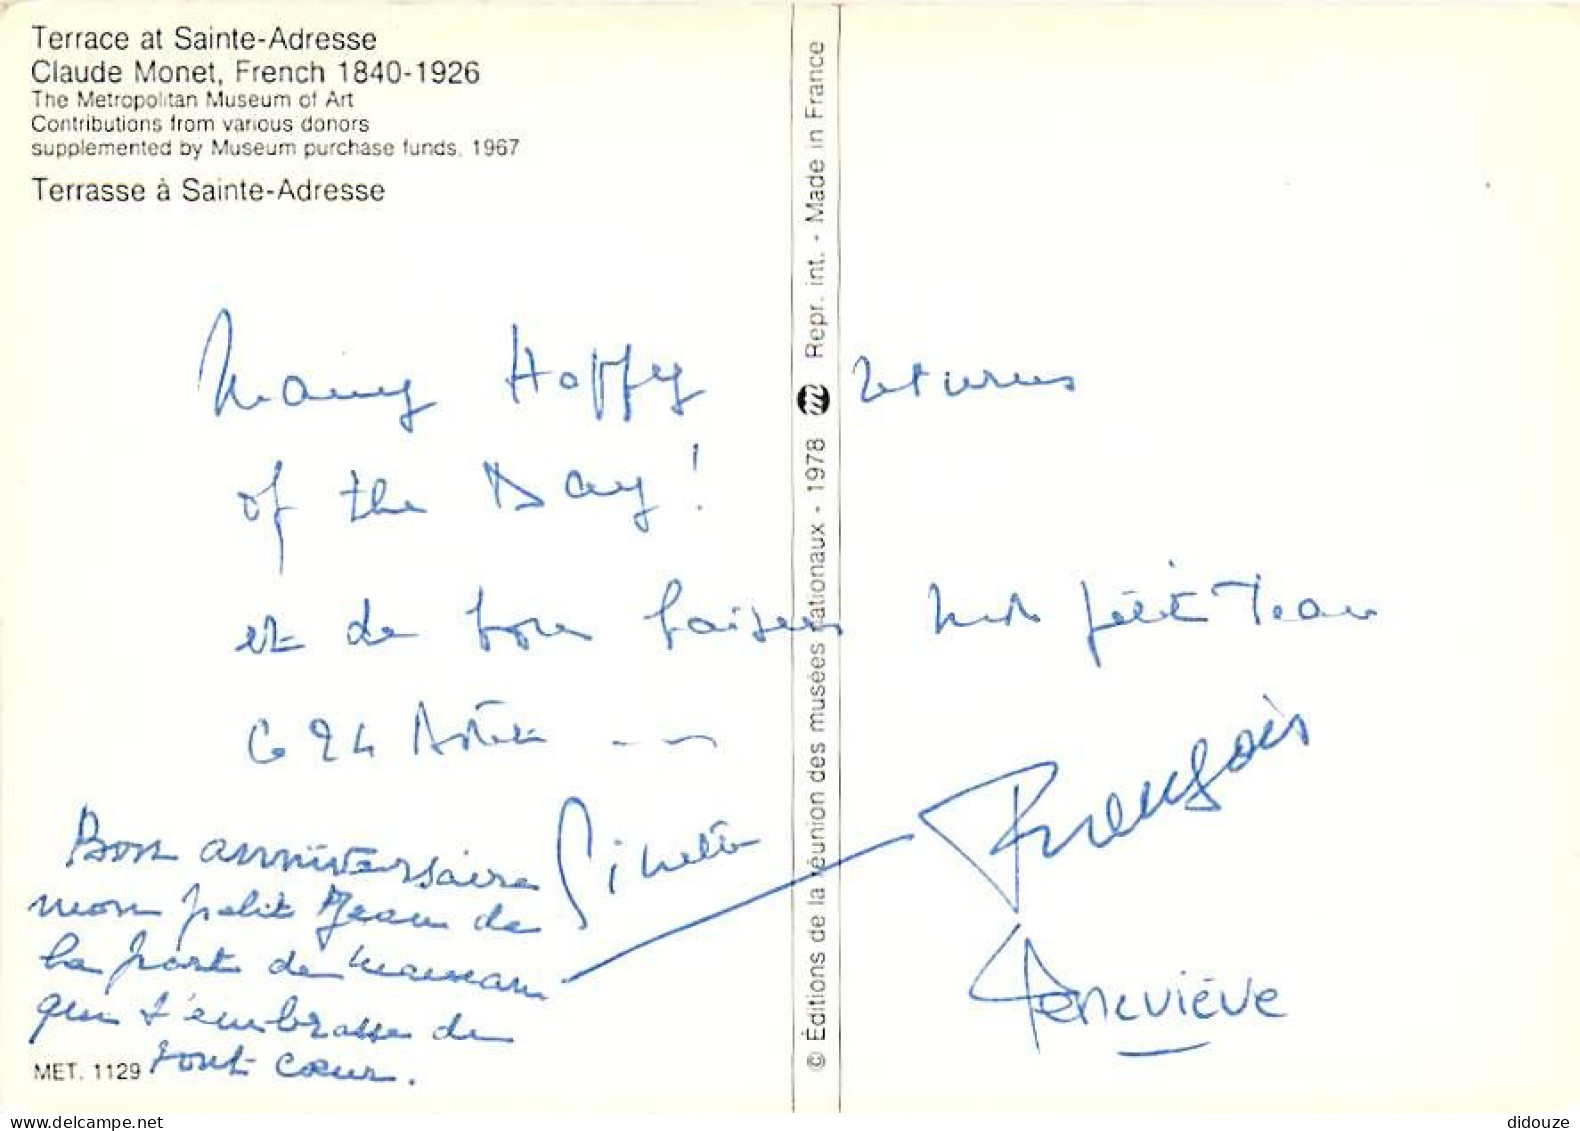 Terrace at Sainte-Adresse
Claude Monet, French 1840-1926
The Metropolitan Museum of Art
Contributions from various donors
supplemented by Museum purchase funds, 1967
Terrasse à Sainte-Adresse
Many Happy returns
of the Day!
et de bons baisers mon petit Jean
Ce 24
Ginette
François
Geneviève
Bon anniversaire
mon petit Jean de
la part de maman
qui t'embrasse de
tout cœur.
MET. 1129
© Éditions de la réunion des musées nationaux - 1978 Repr. int. - Made in France
didouze